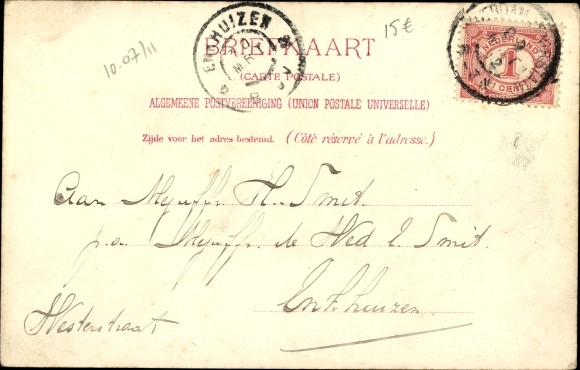 10.07/11
15€
ENKHUIZEN
BRIEFKAART
(CARTE POSTALE)
ALGEMEENE POSTVEREENIGING (UNION POSTALE UNIVERSELLE)
Zijde voor het adres bestemd. (Côté réservé à l'adresse.)
NEDERLAND
1
CENT
Aan Mejuffr. H. Smit.
p.a. Mejuffr. de Wed E. Smit.
Enkhuizen.
Westerstraat